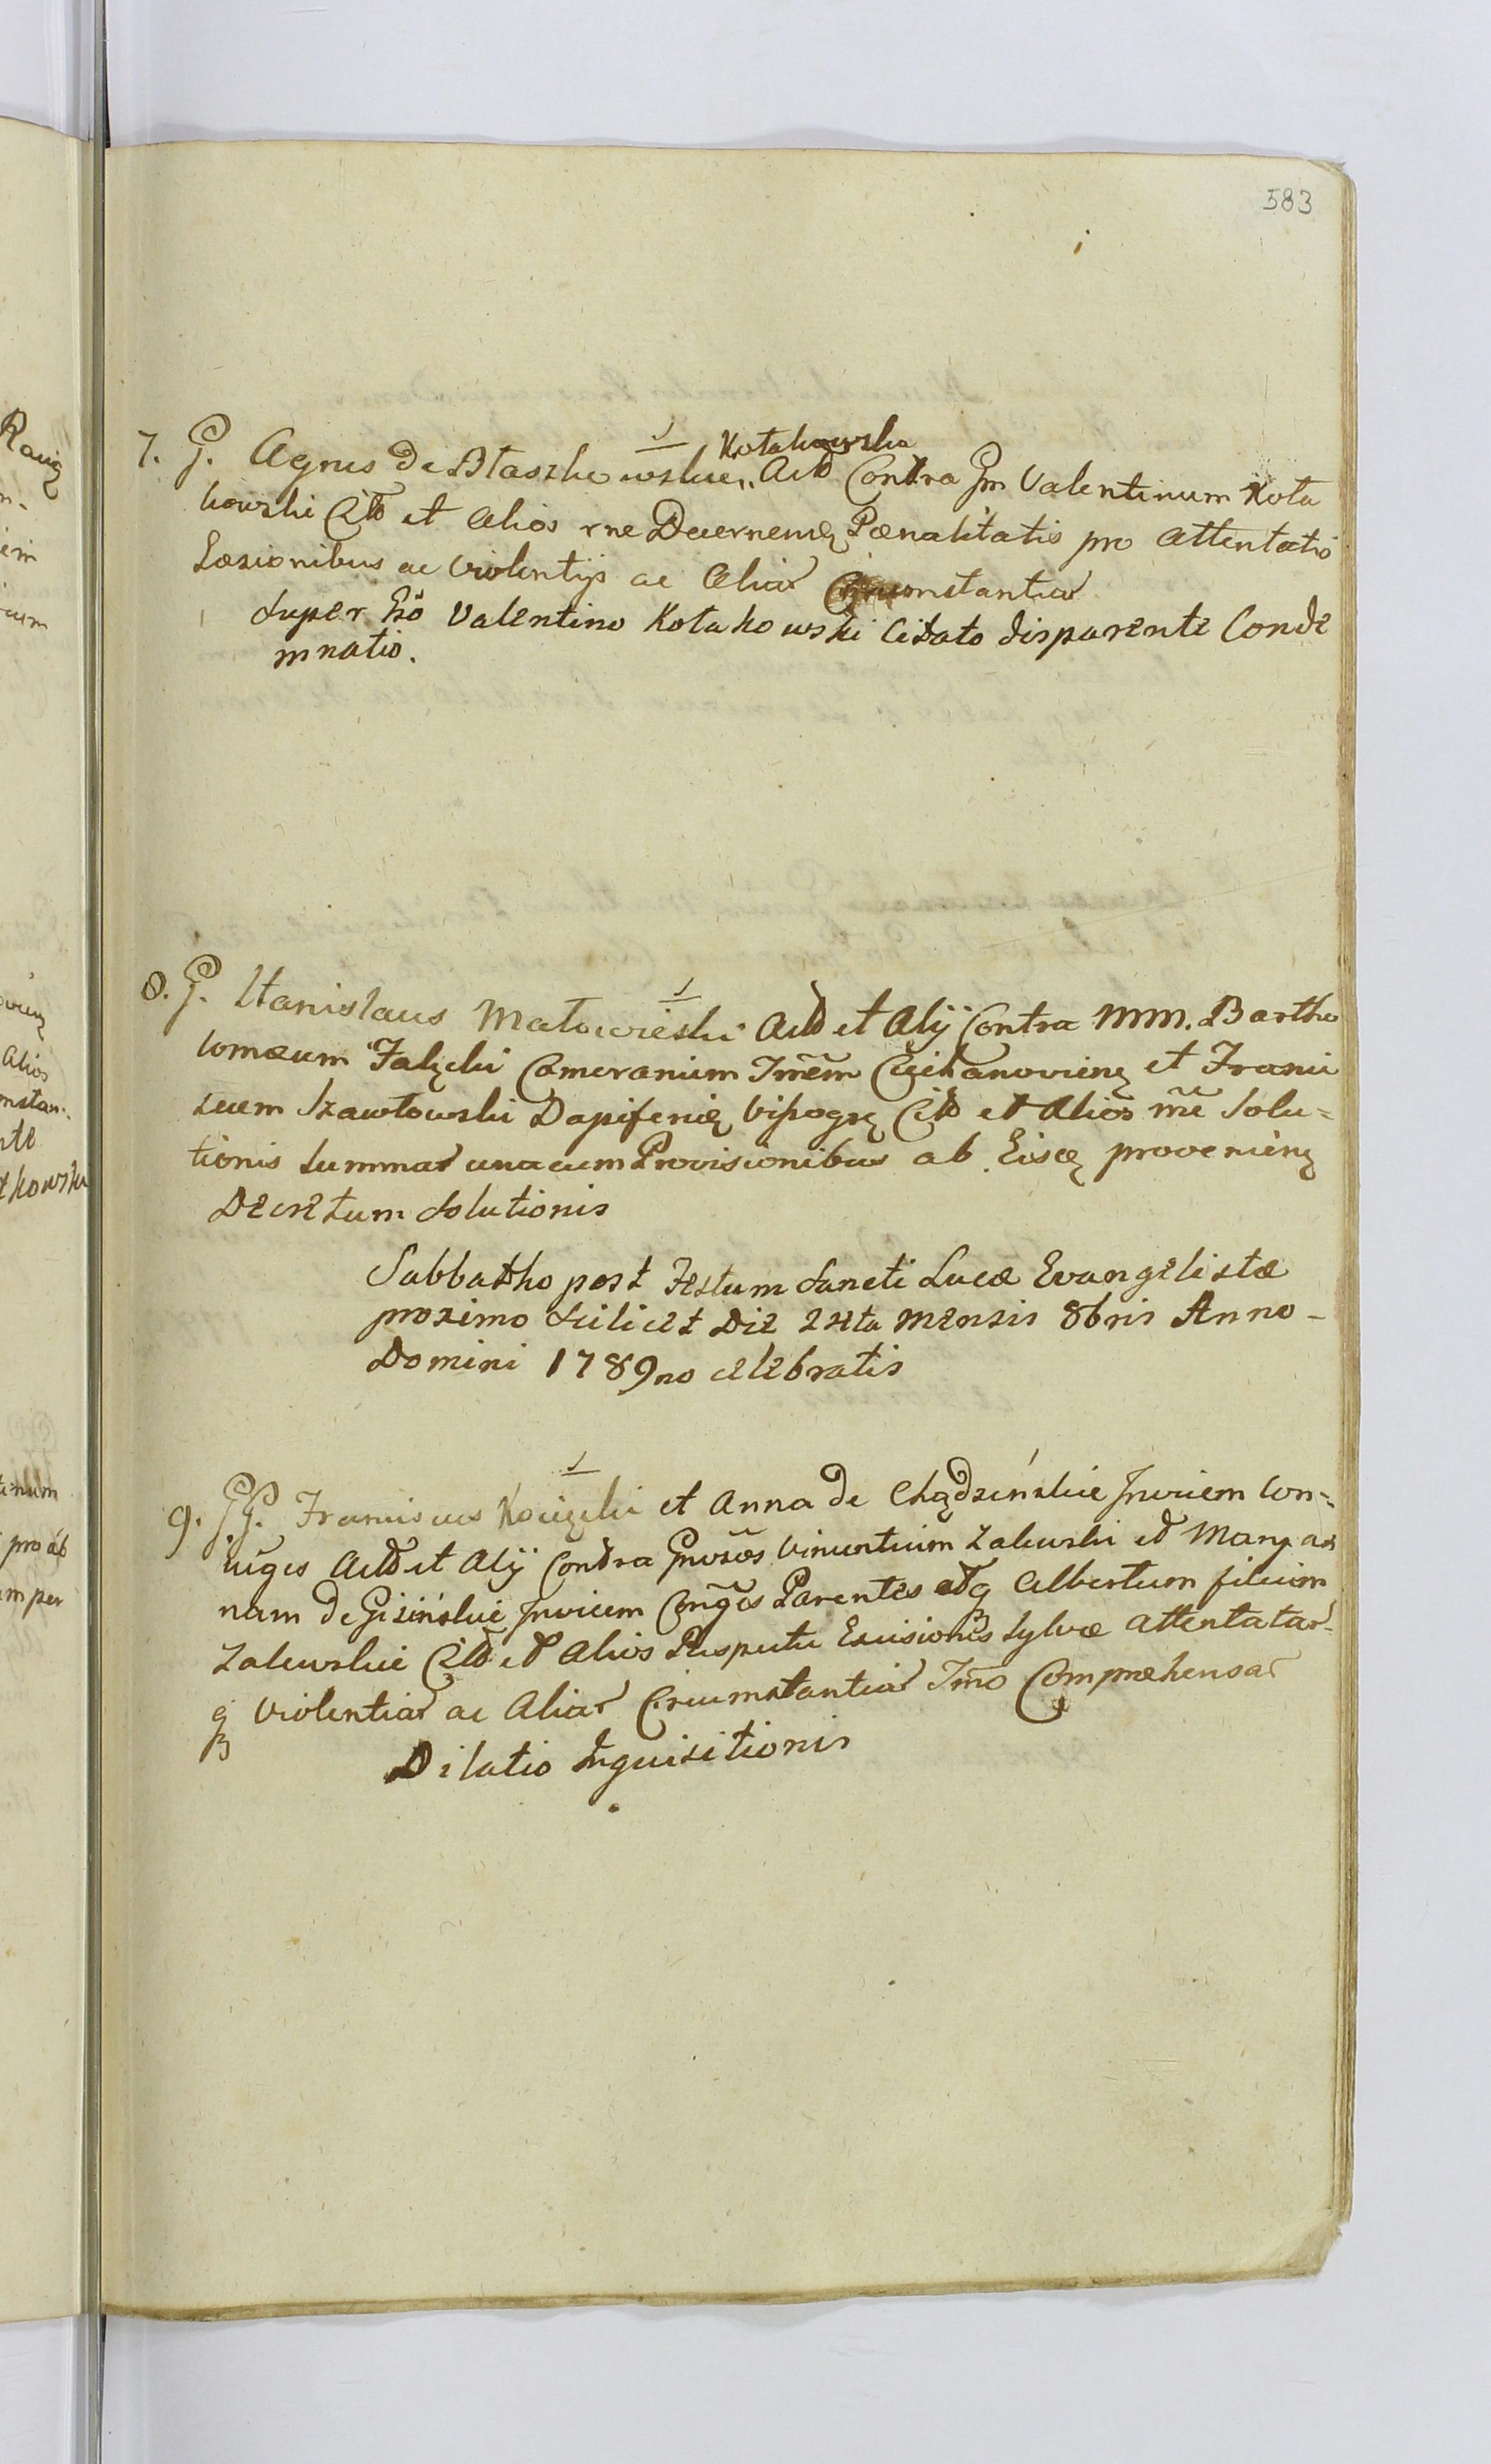 583
7. G. Agnes de Błaszkowskie Kołakowska Actõ Contra Gm Valentinum Koła
kowski Citõ et Alios rne Decernen Pænalitatis pro Attentatis
Læsionibus ac Violentijs ac Aliar Circumstantiar
Super Gso Valentino Kołakowski Citato disparente Conde
mnatio.
8. G. Stanislaus Małowieski Actõ et Alij Contra MM. Bartho
lomæum Załęski Camerarium Trrem Ciechanovien et Franci
scum Szawłowski Dapiferid Vissogr Citõ et Alios rñe Solu=
tionis Summar unacum Provisionibus ab Eisd provenien
Decretum Solutionis
Sabbatho post Festum Sancti Lucæ Evangelistæ
proximo Scilicet Die 24ta Mensis 8bris Anno-
Domini 1789no celebratis
9. GG. Franciscus Kocięcki et Anna de Chądzińskie Invicem Con=
iuges Actõ et Alij Contra Gnosos Vincentium Zalewski et Maryan
nam de Gisińskie Invicem Congēs Parentes atq Albertum filium
Zalewskie Citõ et Alios Respectu Excisionis Sylvæ Attentatar
q Violentiar ac Aliar Circumstantiar Trmo Compræhensar
Dilatio Inquisitionis